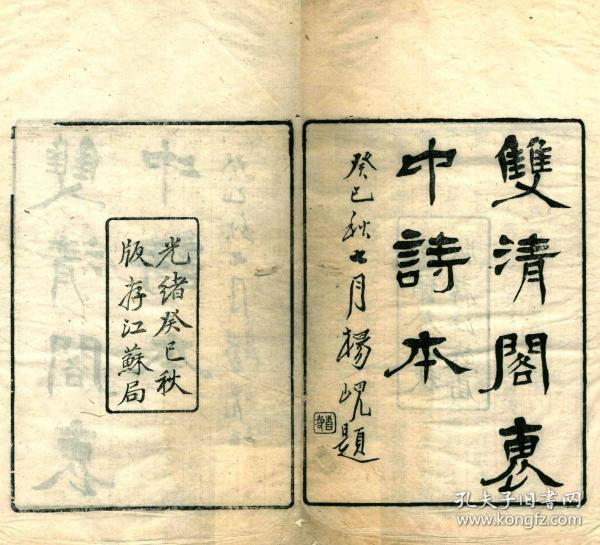 雙清閣褏
中詩本
癸巳秋七月楊峴題
光緒癸巳秋
版存江蘇局
孔夫子旧书网
www.kongfz.com